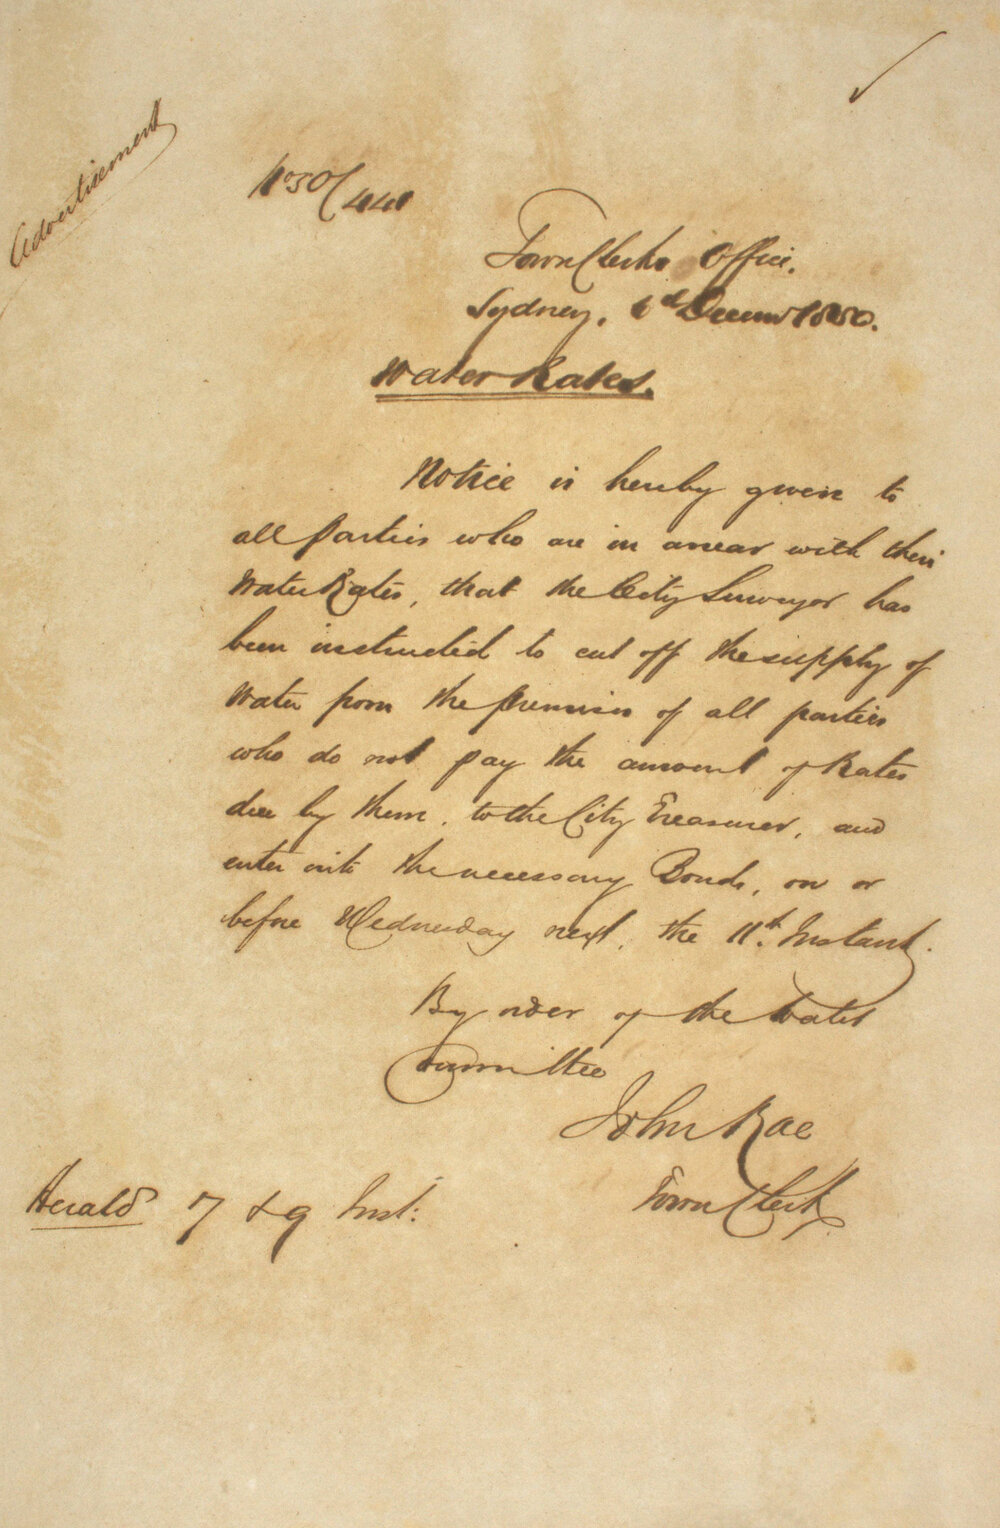 Advertisement
No 50/441
Town Clerks Office.
Sydney, 6th Decemr 1850.
Water Rates.
Notice is hereby given to
all parties who are in arrear with their
Water Rates, that the City Surveyor has
been instructed to cut off the supply of
Water from the premises of all parties
who do not pay the amount of Rates
due by them, to the City Treasurer, and
enter into the necessary Bonds, on or
before Wednesday next, the 11th. Instant.
By order of the Water
Committee
John Rae
Town Clerk
Herald 7 & 9 Inst: